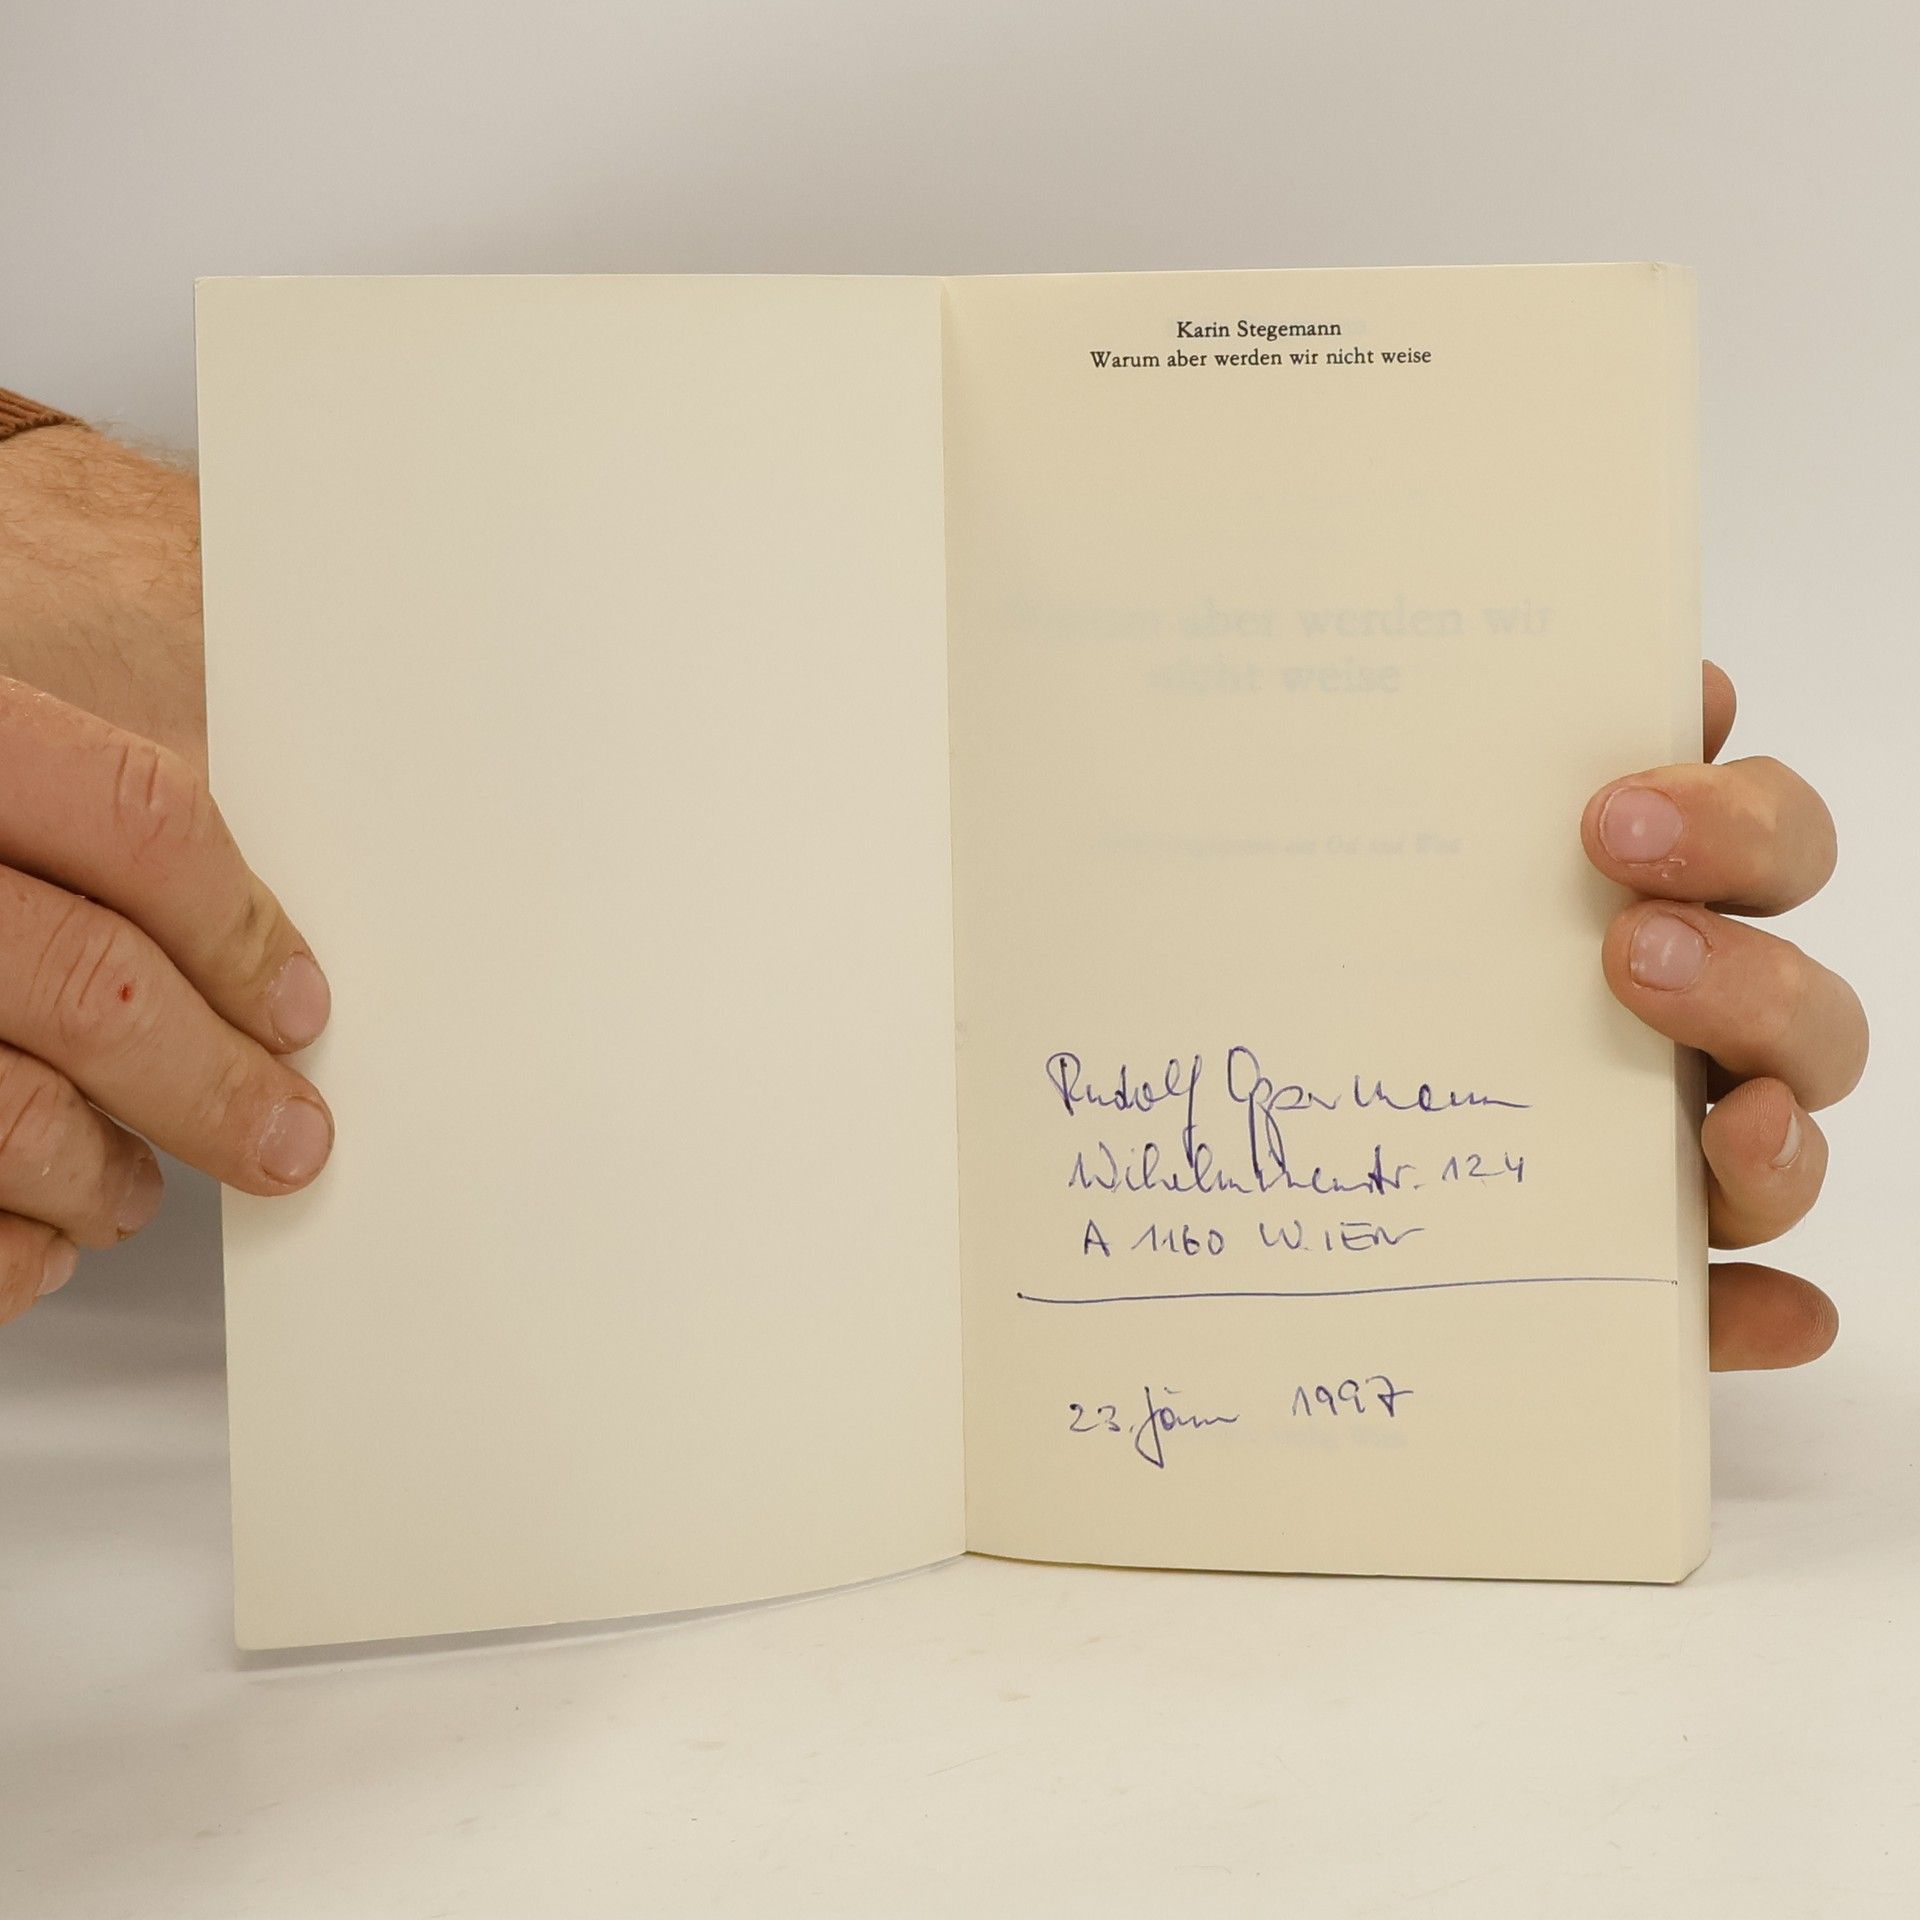 Karin Stegemann
Warum aber werden wir nicht weise
aber werden wir
nicht weise
Ost und West
Rudolf Oppermann
Wilhelminenstr. 124
A 1160 WIEN
23. Jänn 1997